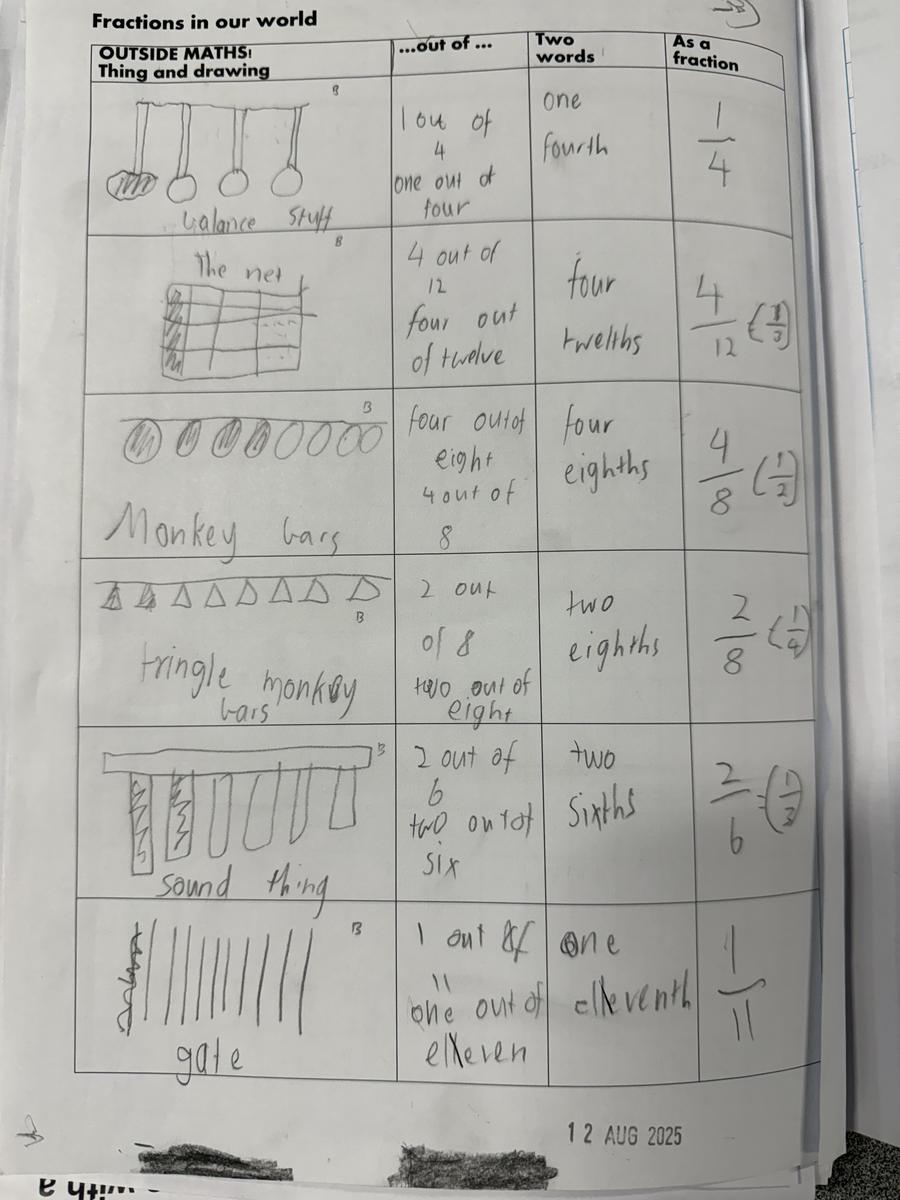 Fractions in our world
OUTSIDE MATHS!
Thing and drawing
...out of ...
Two
words
As a
fraction
B
balance stuff
1 out of
4
one out of
four
one
fourth
1
4
B
The net
4 out of
12
four out
of twelve
four
twelths
4
12
(1/3)
B
Monkey bars
four out of
eight
4 out of
8
four
eighths
4
8
(1/2)
B
tringle monkey
bars
2 out
of 8
two out of
eight
two
eighths
2
8
(1/4)
B
sound thing
2 out of
6
two out of
six
two
sixths
2
6
=(1/3)
B
gate
1 out of
11
one out of
elleven
one
elleventh
1
11
12 AUG 2025
with a